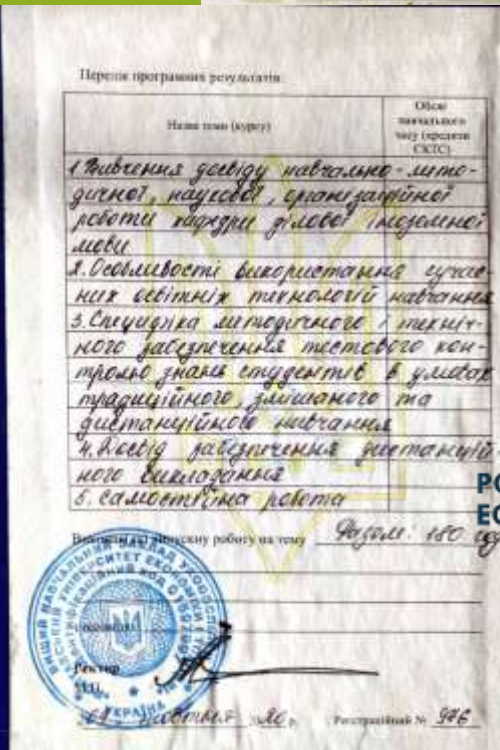 Перелік програмних результатів:
Назва теми (курсу)
Обсяг
навчального
часу (кредити
ЄКТС)
1. Вивчення досвіду навчально-мето-
дичної, наукової, організаційної
роботи кафедри ділової іноземної
мови
2. Особливості використання сучас-
них освітніх технологій навчання
3. Специфіка методичного і техніч-
ного забезпечення тестового кон-
тролю знань студентів в умовах
традиційного, змішаного та
дистанційного навчання
4. Досвід забезпечення дистанцій-
ного викладання
5. самостійна робота
випускну роботу на тему Разом: 180
Ректор
М.П.
УКРАЇНА
жовтня 2020 р. Реєстраційний № 976